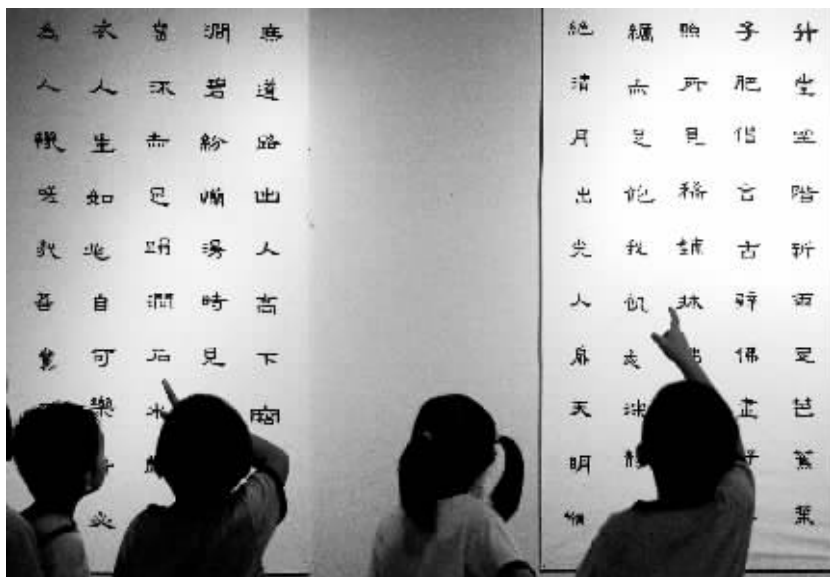 升堂坐階新雨足芭蕉葉
子肥僧言古壁佛畫好
照所見稀鋪床
糲亦足飽我飢夜深靜
絕清月出光入扉天明獨
無道路出人高下窮
澗碧紛爛漫時見
當流赤足蹋澗石水聲
衣人生如此自可樂必
為人鞿嗟哉吾黨